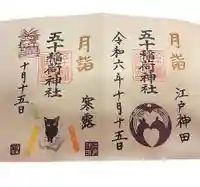 江戸神田
月詣
五十稲荷神社
令和六年十月十五日
月詣
寒露
五十稲荷神社
十月十五日